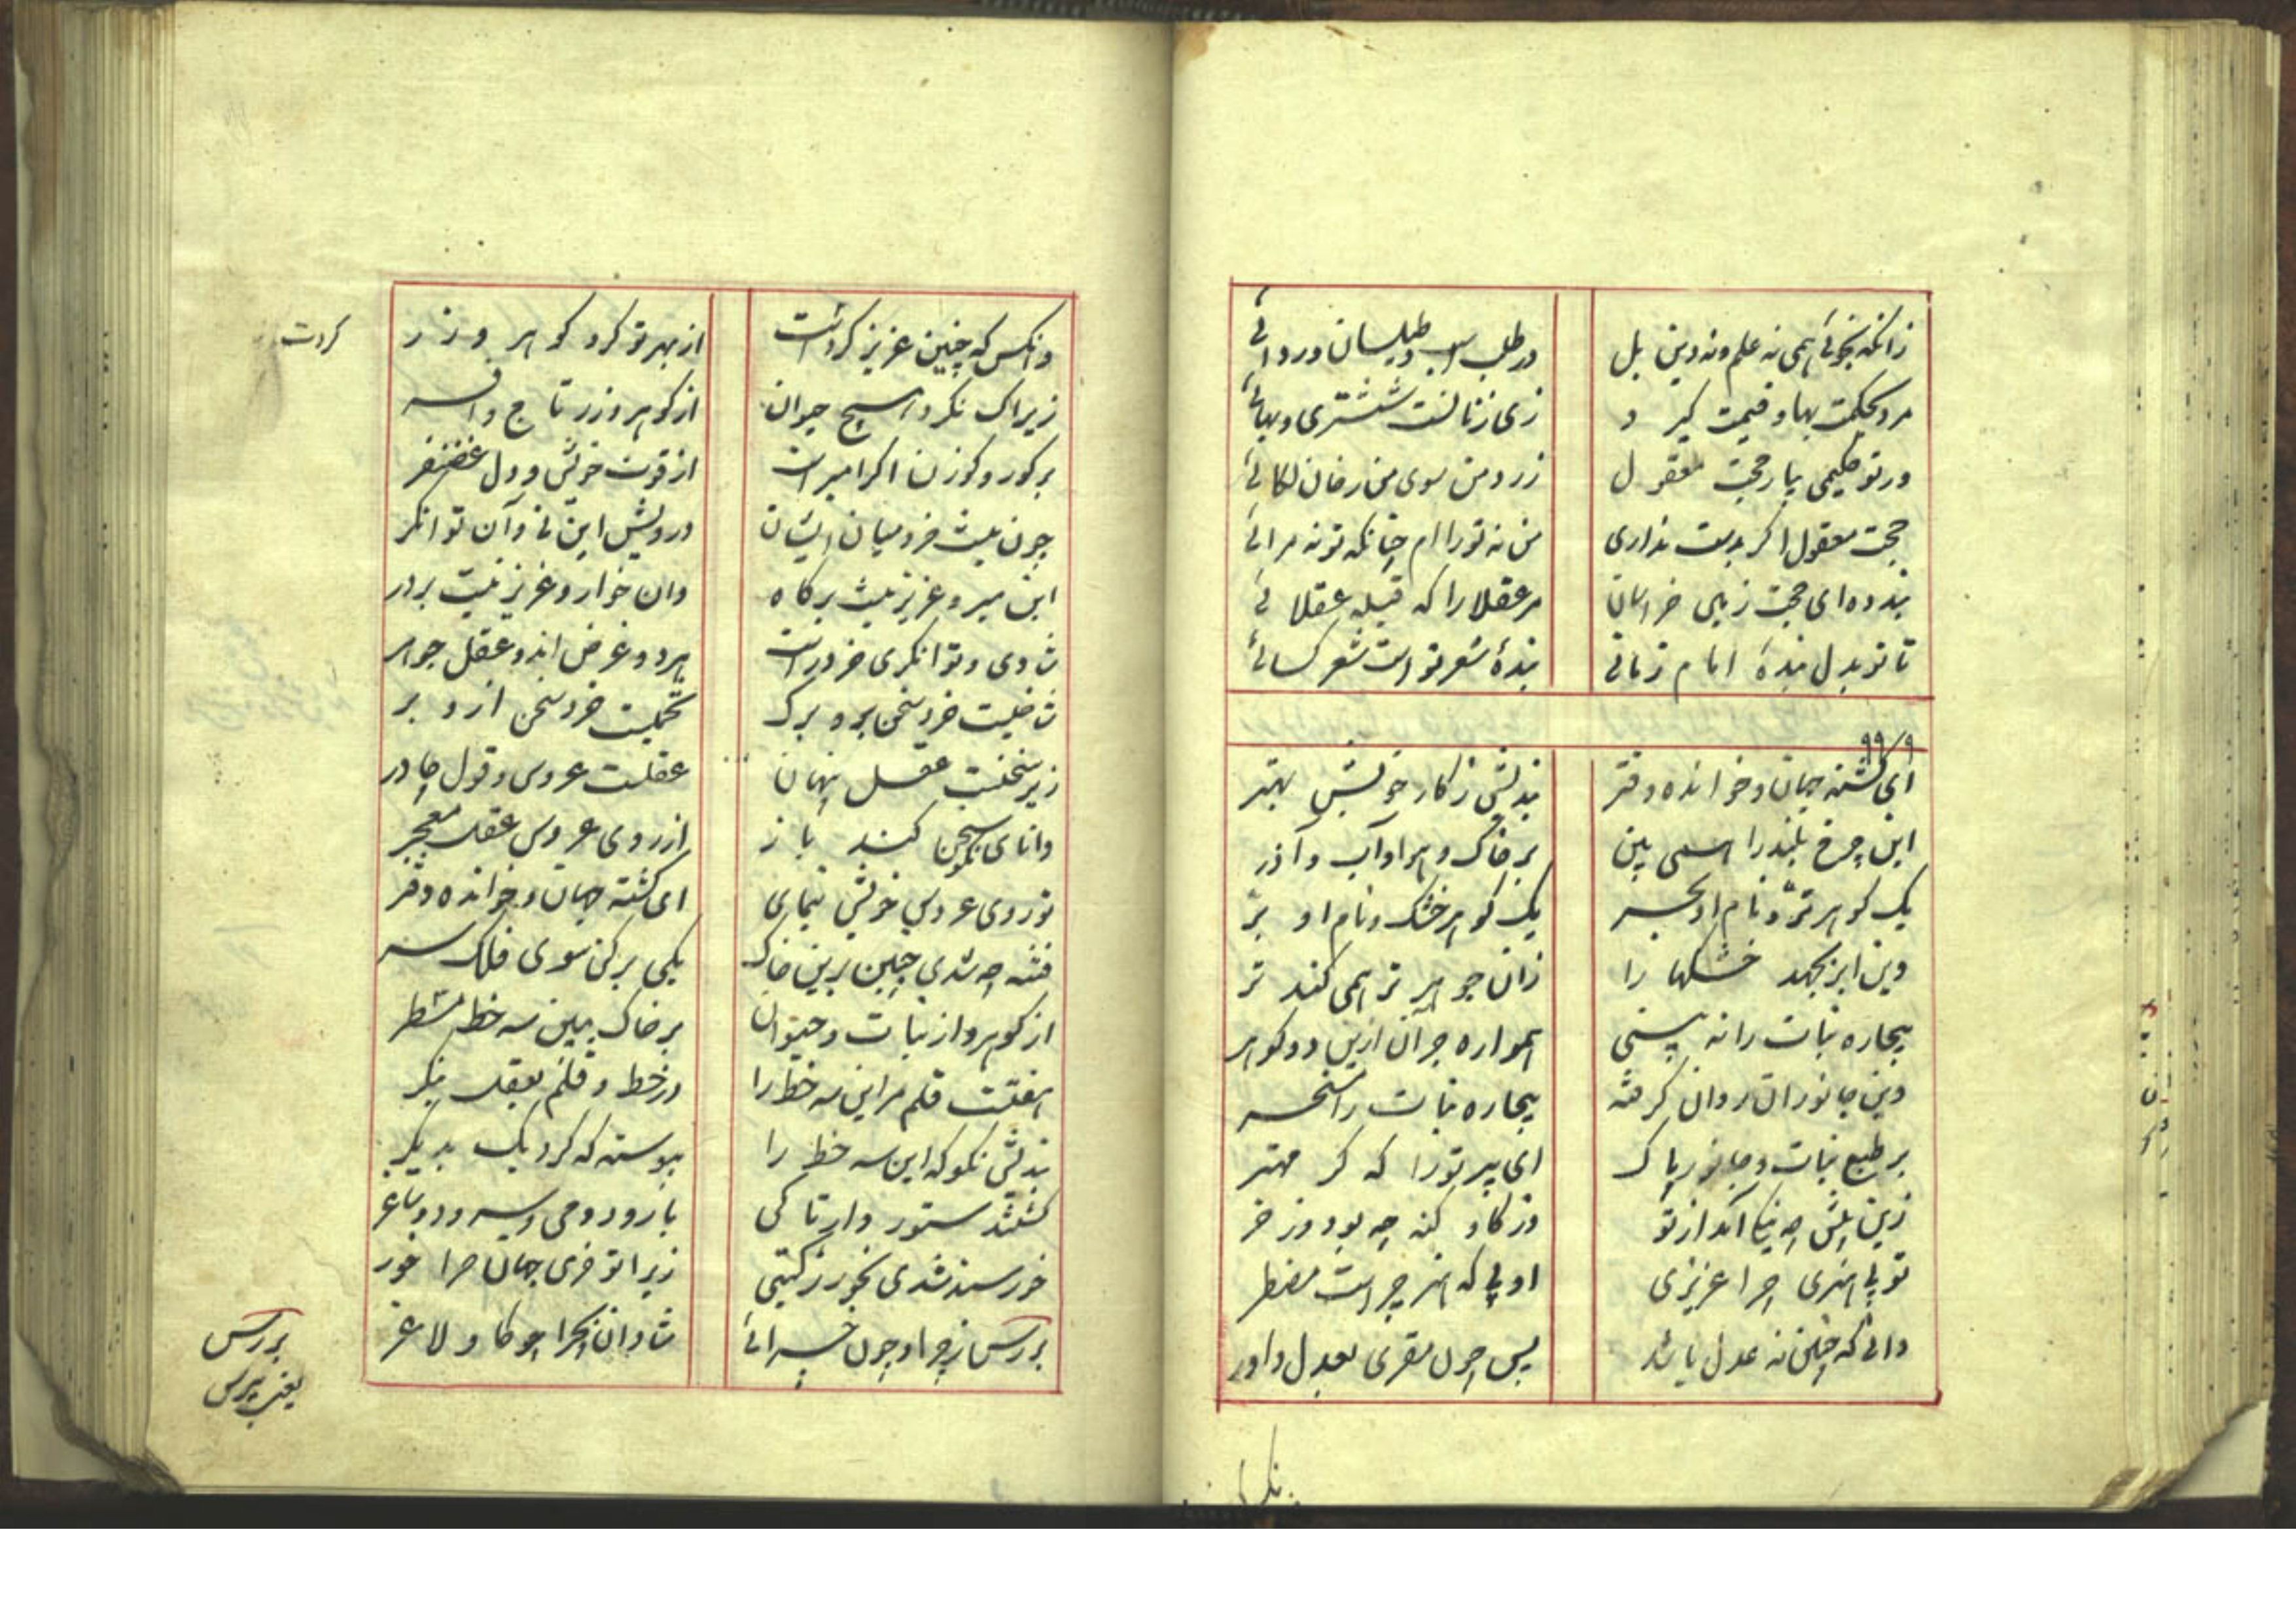 زانکه نجوئی همی نه علم و نه دین بل
در طلب اسب و طیلسان و ردائی
مرد بحکمت بها و قیمت گیرد
زی زنانست ششتری و بهائی
ور تو حکیمی بیار حجت معقول
زرد مکن سوی من رخان لکائی
حجت معقول اگر بدست نداری
من نه تو را ام چنانکه تو نه مرائی
پند ده ای حجت زمین خراسان
مر عقلا را که قبله عقلائی
تا تو بدل بندهٔ امام زمانی
بندهٔ شعر تو است شعر کسائی
۹۹
ای گشته جهان و خوانده دفتر
بندیش ز کار خویش بهتر
این چرخ بلند را همی بین
بر خاک و هوا و آب و آذر
یک گوهر تر و نام او بحر
یک گوهر خشک و نام او بر
وین ابر بجهد خشکها را
زان جوهر تر همی کند تر
بیچاره نبات را نه بینی
همواره جوان ازین دو گوهر
وین جانوران روان گرفته
بیچاره نبات را مسخر
بر طبع نبات و جانور پاک
ای پیر تو را که کرد مهتر
زین پیش چه نیکی آمد از تو
وز گاو گنه چه بود وز خر
تو بی هنری چرا عزیزی
او بی گنهی چراست مضطر
دانی که چنین نه عدل باشد
پس چون مقری بعدل داور
وانکس که چنین عزیز کردت
از بهر تو کرد گوهر و زر
کردت
زیراک نکرد هیچ حیوان
از گوهر و زر تاج و افسر
بر گور و گوزن اگر امیر است
از قوت خویش و دل غضنفر
چون نیست خرد میان ایشان
درویش این نی و آن توانگر
این میر و عزیز نیست بر گاه
وان خوار و عزیز نیست بر در
شادی و توانگری خرد راست
هر دو عرض اند و عقل جوهر
شاخیست خرد سخن برو برگ
تخمیست خرد سخن ازو بر
زیر سخنست عقل پنهان
عقلست عروس و قول چادر
دانای سخن نکو کند باز
از روی عروس عقل معجر
تو روی عروس خویش بنمای
ای گشته جهان و خوانده دفتر
فتنه چه شدی چنین برین خاک
یکی بر کن سوی فلک سر
از گوهر و از نبات و حیوان
بر خاک ببین سه خط مسطر
هفتست قلم مر این سه خط را
در خط و قلم بعقل بنگر
بندیش نکو که این سه خط را
پیوسته که کرد یک بدیگر
گشتند ستور وار تا کی
با رود و می و سرود و ساغر
خرسند شدی بخور ز گیتی
زیرا تو خری جهان چرا خور
بررس ز چرا و چون خسرانی
شادان بچرا چو گاو لاغر
بررس
یعنی بپرس